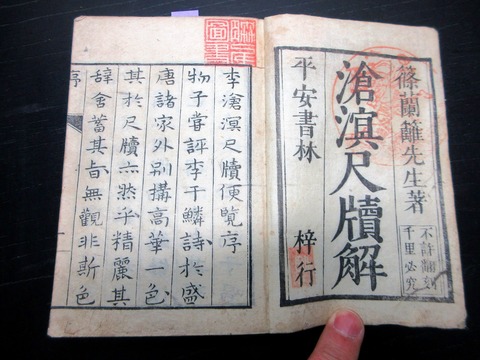 篠蘭籬先生著
不許翻刻
千里必究
滄溟尺牘解
平安書林
梓行
李滄溟尺牘便覽序
物子嘗評李于鱗詩於盛
唐諸家外別搆高華一色
其於尺牘亦然乎精麗其
辭含蓄其旨無觀非斯色
序